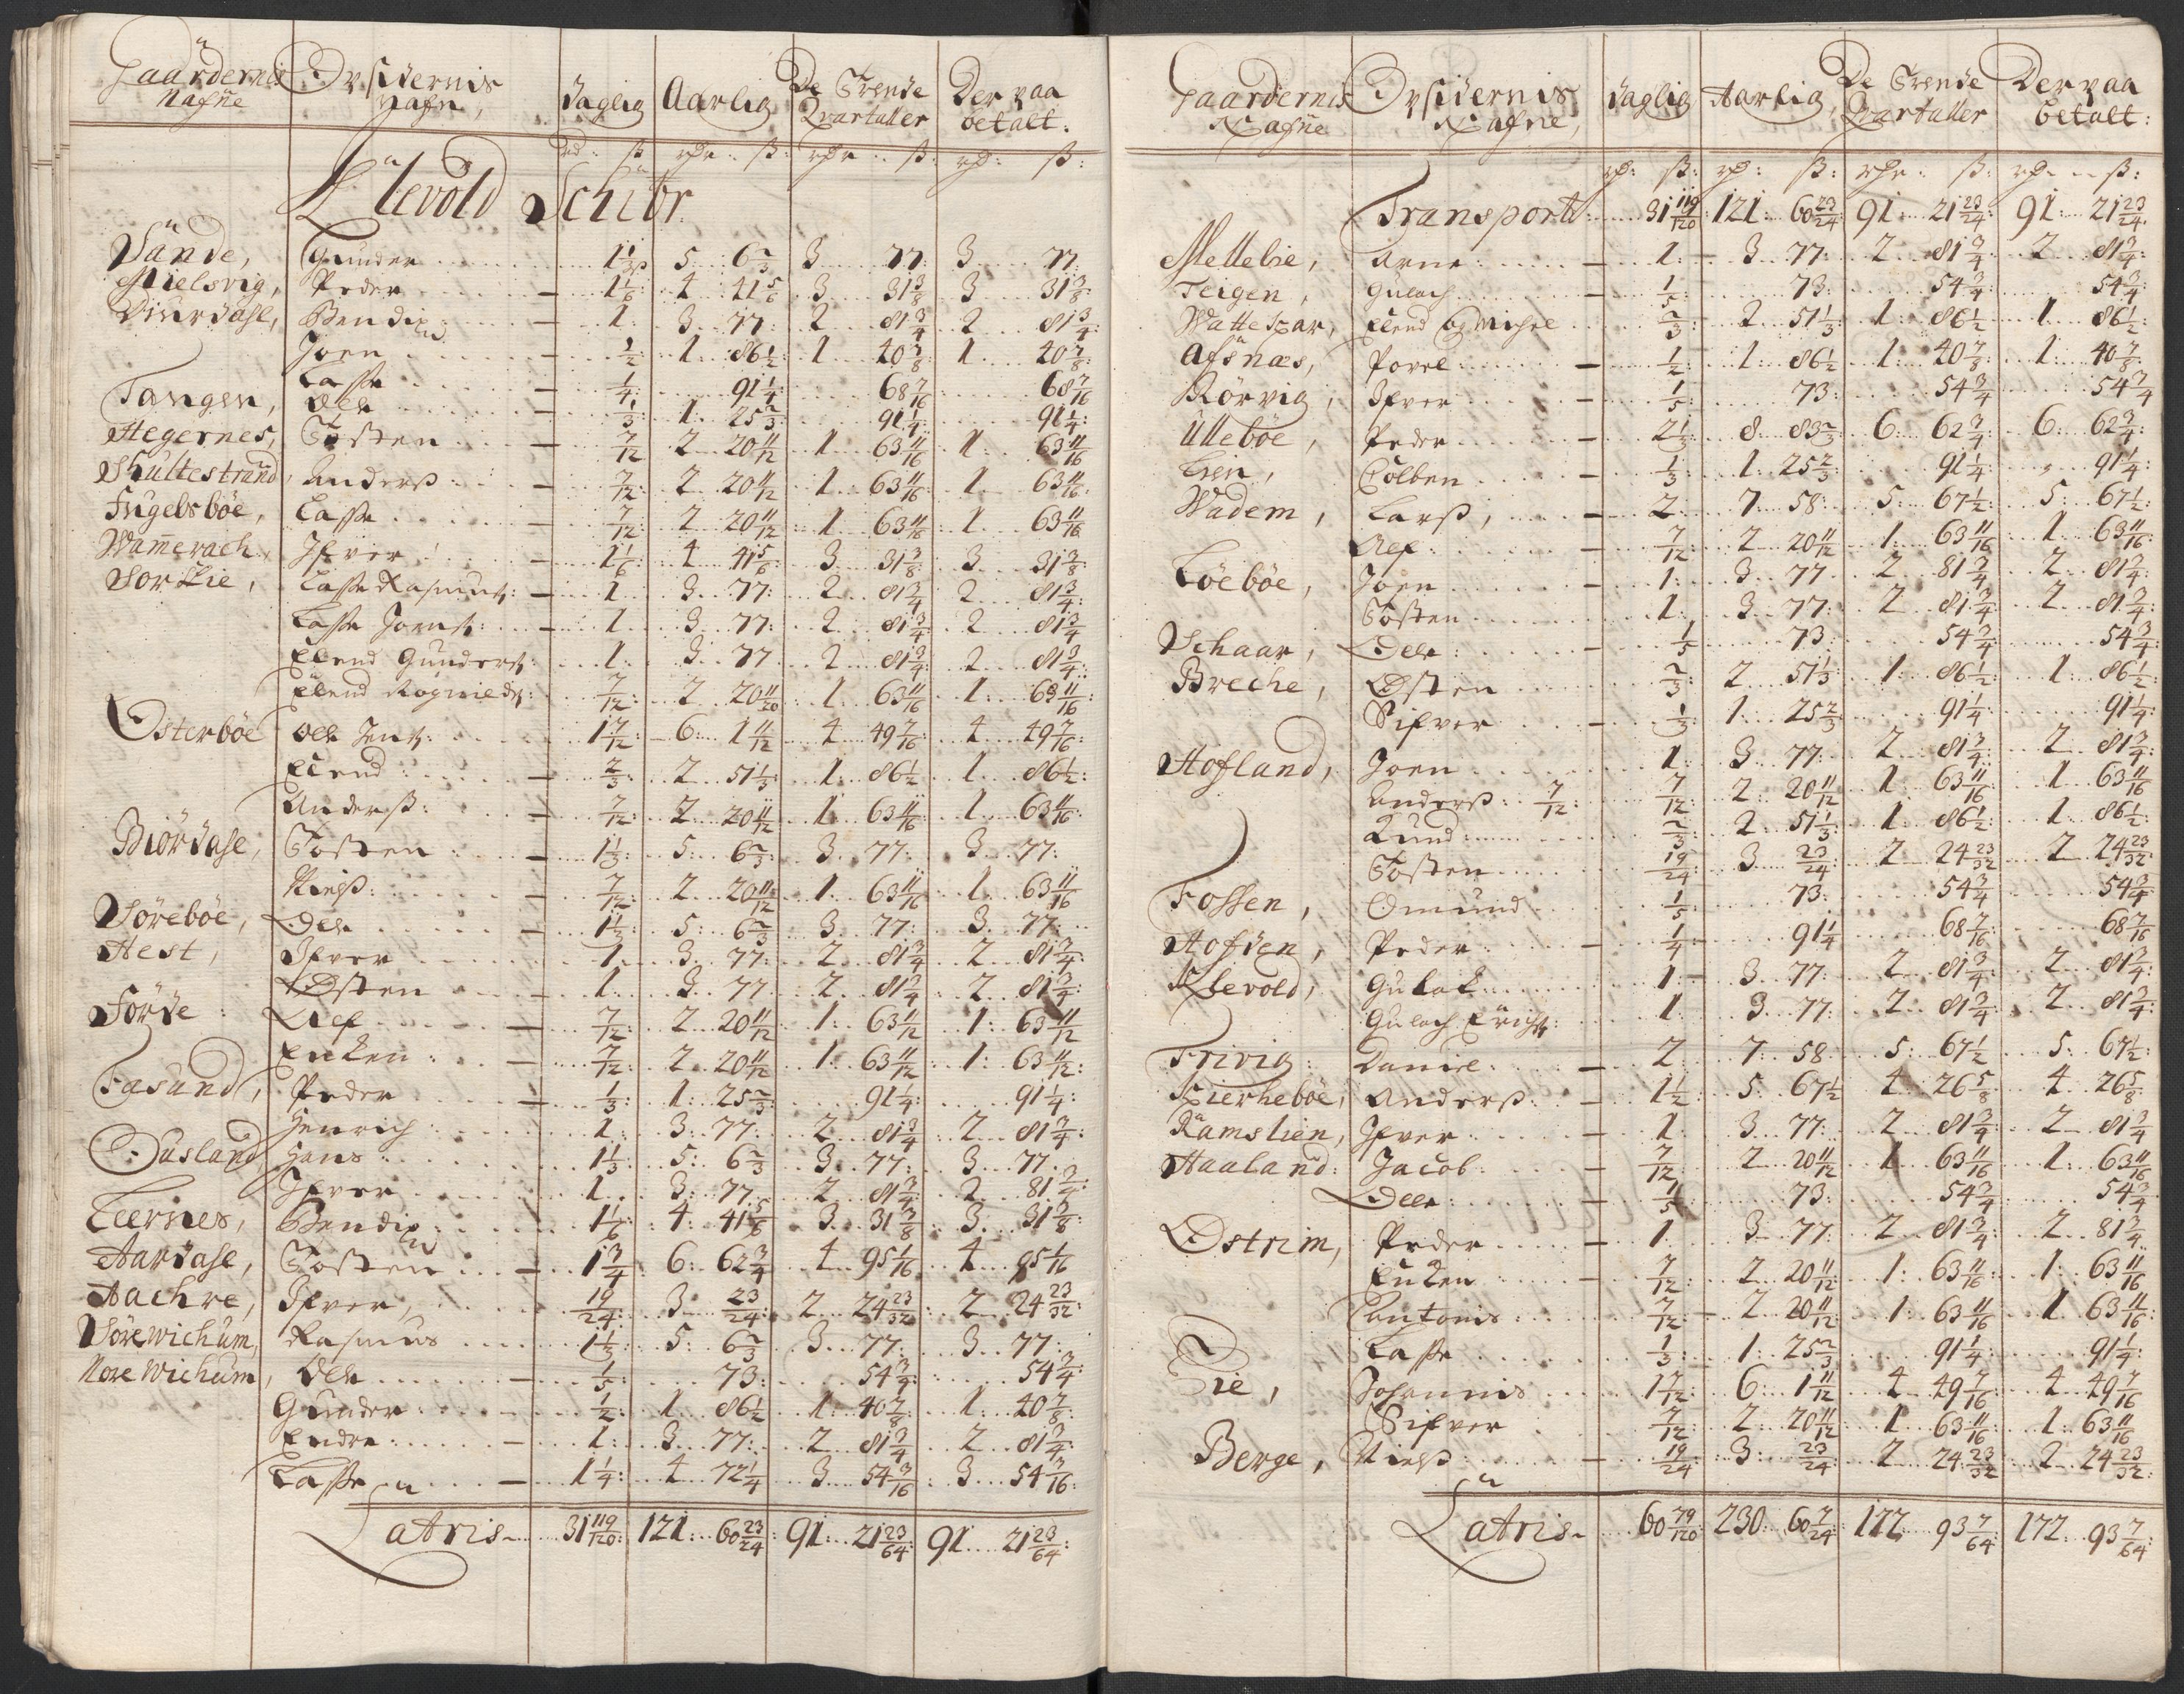 Gaardernis Nafne | Opsidernis Nafn, | Daglig | Aarlig | De Trende Qvartaller | Derpaa betalt:
rd: ß: | rdr: ß: | rdr: ß: | rd: ß:
Klevold Schibr.
Sande, Gunder 1 1/3 | 5 6 2/3 | 3 77 | 3 77
Nielsvig, Peder 1 1/6 | 4 41 5/6 | 3 31 3/8 | 3 31 3/8
Diurdahl, Bendix 1 | 3 77 | 2 81 3/4 | 2 81 3/4
Joen 1/2 | 1 86 1/2 | 1 40 7/8 | 1 40 7/8
Lasse 1/4 | 91 1/4 | 68 7/16 | 68 7/16
Tangen, Ole 1/3 | 1 25 2/3 | 91 1/4 | 91 1/4
Hegernes, Tosten 7/12 | 2 20 11/12 | 1 63 11/16 | 1 63 11/16
Skultestrand, Anderß 7/12 | 2 20 11/12 | 1 63 11/16 | 1 63 11/16
Fuglebsböe, Lasse 7/12 | 2 20 11/12 | 1 63 11/16 | 1 63 11/16
Wamerach, Ifver 1 1/6 | 4 41 5/6 | 3 31 3/8 | 3 31 3/8
Sorlie, Lasse Rasmus: 1 | 3 77 | 2 81 3/4 | 2 81 3/4
Lasse Jorns: 1 | 3 77 | 2 81 3/4 | 2 81 3/4
Elend Gunders: 1 | 3 77 | 2 81 3/4 | 2 81 3/4
Elend Rognilds: 7/12 | 2 20 11/20 | 1 63 11/16 | 1 63 11/16
Osterböe Ole Jens: 1 7/12 | 6 1 11/12 | 4 49 7/16 | 4 49 7/16
Elend 2/3 | 2 51 1/3 | 1 86 1/2 | 1 86 1/2
Anderß: 7/12 | 2 20 11/12 | 1 63 11/16 | 1 63 11/16
Biördahl, Tosten 1 1/3 | 5 6 2/3 | 3 77 | 3 77
Nielß: 7/12 | 2 20 11/12 | 1 63 11/16 | 1 63 11/16
Söreböe, Ole 1 1/3 | 5 6 2/3 | 3 77 | 3 77
Hest, Ifver 1 | 3 77 | 2 81 3/4 | 2 81 3/4
Østen 1 | 3 77 | 2 81 3/4 | 2 81 3/4
Förde: Alf 7/12 | 2 20 11/12 | 1 63 11/12 | 1 63 11/12
Enken 7/12 | 2 20 11/12 | 1 63 11/12 | 1 63 11/12
Fasund, Peder 1/3 | 1 25 2/3 | 91 1/4 | 91 1/4
Henrich 1 | 3 77 | 2 81 3/4 | 2 81 3/4
Dusland, Hans 1 1/3 | 5 6 2/3 | 3 77 | 3 77
Ifver 1 | 3 77 | 2 81 3/4 | 2 81 3/4
Leernes, Bendix 1 1/6 | 4 41 5/6 | 3 31 3/8 | 3 31 3/8
Aardahl, Tosten 1 3/4 | 6 62 3/4 | 4 95 1/16 | 4 95 1/16
Aachre, Ifver, 19/24 | 3 23/24 | 2 24 23/32 | 2 24 23/32
Sörewichum, Rasmus 1 1/3 | 5 6 2/3 | 3 77 | 3 77
Nore Wichum, Ole 1/5 | 73 | 54 3/4 | 54 3/4
Gunder 1/2 | 1 86 1/2 | 1 40 7/8 | 1 40 7/8
Endre 1 | 3 77 | 2 81 3/4 | 2 81 3/4
Lasse 1 1/4 | 4 72 1/4 | 3 54 3/16 | 3 54 3/16
Latris 31 119/120 | 121 60 23/24 | 91 21 23/64 | 91 21 23/64
Gaardernis Nafne | Opsidernis Nafne, | Daglig | Aarlig, | De Trende Qvartaller | Derpaa betalt:
rd: ß: | rd: ß: | rdr: ß: | rd: ß:
Transport 31 119/120 | 121 60 23/24 | 91 21 23/24 | 91 21 23/24
Mellebie, Arne 1 | 3 77 | 2 81 3/4 | 2 81 3/4
Teigen, Gulach 1/5 | 73 | 54 3/4 | 54 3/4
Elend og Michel 2/3 | 2 51 1/3 | 1 86 1/2 | 1 86 1/2
Afsnæs, Povel 1/2 | 1 86 1/2 | 1 40 7/8 | 1 40 7/8
Rörvig, Ifver 1/5 | 73 | 54 3/4 | 54 3/4
Ulleböe, Peder 2 1/3 | 8 83 2/3 | 6 62 3/4 | 6 62 3/4
Lien, Colben 1/3 | 1 25 2/3 | 91 1/4 | 91 1/4
Wadem, Larß, 2 | 7 58 | 5 67 1/2 | 5 67 1/2
Alf 7/12 | 2 20 11/12 | 1 63 11/16 | 1 63 11/16
Löeböe, Joen 1 | 3 77 | 2 81 3/4 | 2 81 3/4
Tosten 1 | 3 77 | 2 81 3/4 | 2 81 3/4
Schaar, Ole 1/5 | 73 | 54 3/4 | 54 3/4
Breche, Østen 2/3 | 2 51 1/3 | 1 86 1/2 | 1 86 1/2
Sifver 1/3 | 1 25 2/3 | 91 1/4 | 91 1/4
Hofland, Joen 1 | 3 77 | 2 81 3/4 | 2 81 3/4
Anderß 7/12 7/12 | 2 20 11/12 | 1 63 11/16 | 1 63 11/16
Knud 2/3 | 2 51 1/3 | 1 86 1/2 | 1 86 1/2
Tosten 19/24 | 3 23/24 | 2 24 23/32 | 2 24 23/32
Fossen, Omund 1/5 | 73 | 54 3/4 | 54 3/4
Hofden, Peder 1/4 | 91 1/4 | 68 7/16 | 68 7/16
Klevold, Gulak 1 | 3 77 | 2 81 3/4 | 2 81 3/4
Gulach Erichs: 1 | 3 77 | 2 81 3/4 | 2 81 3/4
Frivig: Daniel 2 | 7 58 | 5 67 1/2 | 5 67 1/2
Kierheböe, Anderß 1 1/2 | 5 67 1/2 | 4 26 5/8 | 4 26 5/8
Ramslien, Ifver 1 | 3 77 | 2 81 3/4 | 2 81 3/4
Haaland: Jacob 7/12 | 2 20 11/12 | 1 63 11/16 | 1 63 11/16
Ole 1/5 | 73 | 54 3/4 | 54 3/4
Østrim, Peder 1 | 3 77 | 2 81 3/4 | 2 81 3/4
Enken 7/12 | 2 20 11/12 | 1 63 11/16 | 1 63 11/16
Antonis 7/12 | 2 20 11/12 | 1 63 11/16 | 1 63 11/16
Lasse 1/3 | 1 25 2/3 | 91 1/4 | 91 1/4
Lie, Johannis 1 7/12 | 6 1 11/12 | 4 49 7/16 | 4 49 7/16
Sifver 7/12 | 2 20 11/12 | 1 63 11/16 | 1 63 11/16
Berge, Nielß 19/24 | 3 23/24 | 2 24 23/32 | 2 24 23/32
Latris 60 79/120 | 230 60 7/24 | 172 93 7/64 | 172 93 7/64